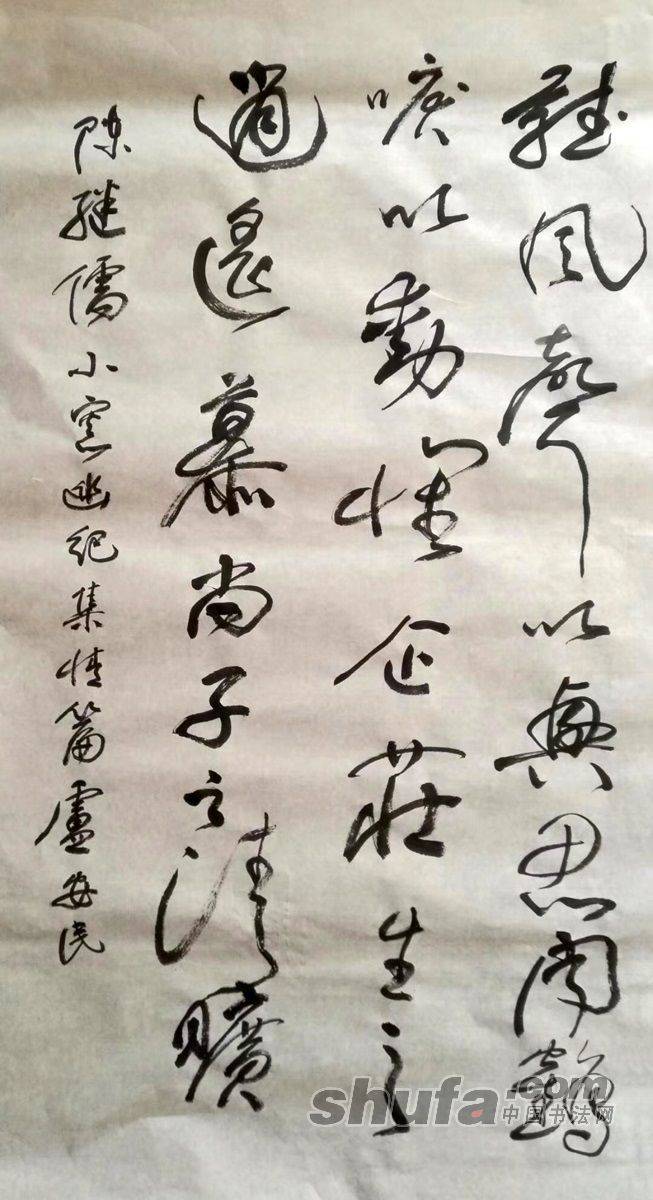 聽風聲以興思聞鶴
唳以動懷企莊生之
逍遙慕尚子之清曠
陳繼儒小窗幽紀集情篇盧安民
shufa.com
中国书法网